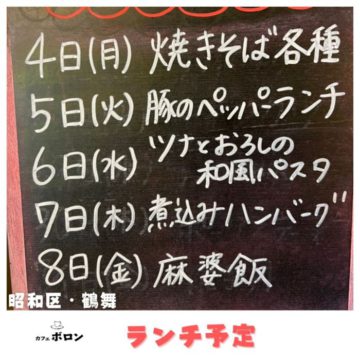 4日(月) 焼きそば各種
5日(火) 豚のペッパーランチ
6日(水) ツナとおろしの
和風パスタ
7日(木) 煮込みハンバーグ
8日(金) 麻婆飯
昭和区・鶴舞
カフェ ボロン
ランチ予定